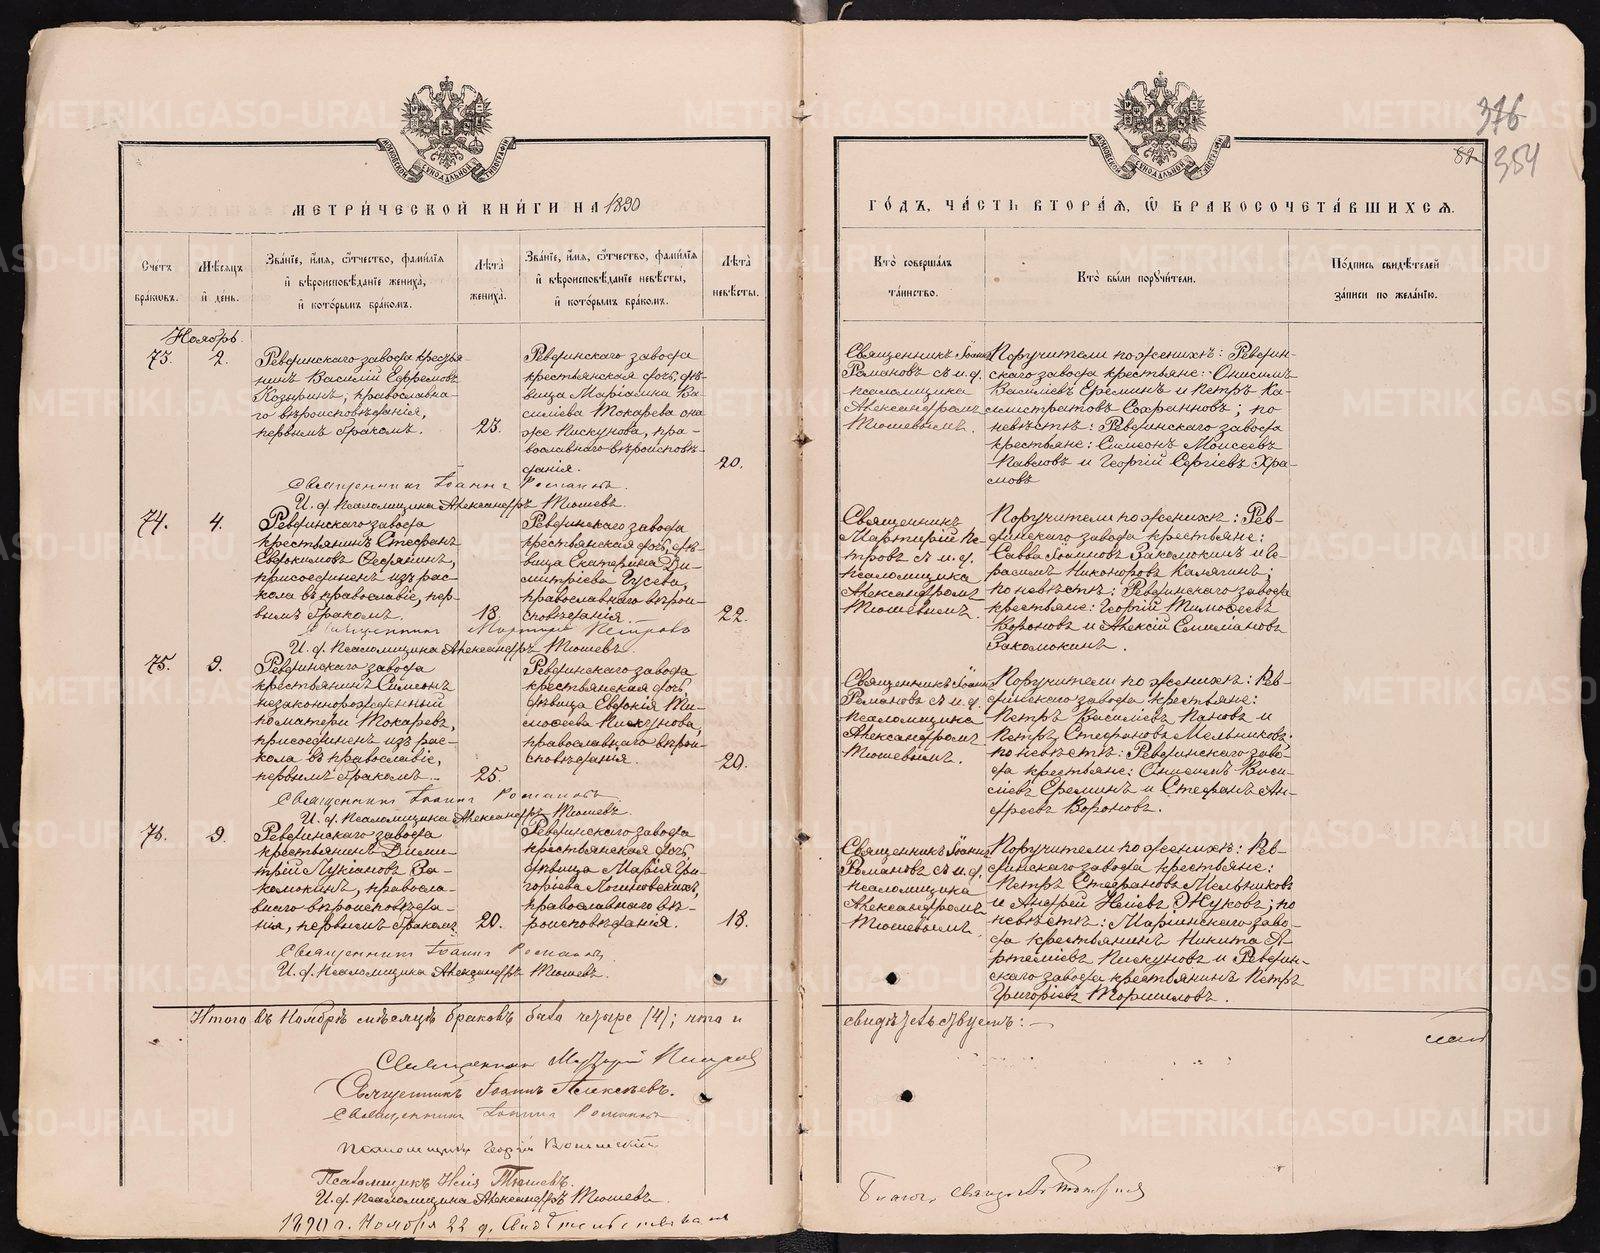 МЕТРИ́ЧЕСКОЙ КНИ́ГИ НА 1890
Счетъ браковъ.
Мѣсяцъ и день.
Зва́нїе, и҆́мя, ѻ҆́тчество, фами́лїя и҆ вѣроисповѣ́данїе жениха̀, и҆ кото́рымъ бра́комъ.
Лѣта̀ жениха̀.
Зва́нїе, и҆́мя, ѻ҆́тчество, фами́лїя и҆ вѣроисповѣ́данїе невѣ́сты, и҆ кото́рымъ бра́комъ.
Лѣта̀ невѣ́сты.
Ноябрь.
73.
2.
Ревдинскаго завода крестья-
нинъ Василій Ефремовъ
Козыринъ, православна-
го вѣроисповѣданія,
первымъ бракомъ.
23.
Ревдинскаго завода
крестьянская дочь, дѣ-
вица Маріамна Ва-
силіева Токарева она
же Пискунова, пра-
вославнаго вѣроисповѣ-
данія.
20.
Священникъ Іоаннъ Романовъ.
И. д. Псаломщика Александръ Тюшевъ.
74.
4.
Ревдинскаго завода
крестьянинъ Стефанъ
Евдокимовъ
присоединенъ изъ рас-
кола въ православіе, пер-
вымъ бракомъ.
18.
Ревдинскаго завода
крестьянская дочь, дѣ-
вица Екатерина Ди-
митріева Гусева,
православнаго вѣрои-
сповѣданія.
22.
Священникъ Мартирій Петровъ
И. д. Псаломщика Александръ Тюшевъ.
75.
9.
Ревдинскаго завода
крестьянинъ Симеонъ
незаконнорожденный
по матери Токаревъ,
присоединенъ изъ рас-
кола въ православіе,
первымъ бракомъ.
25.
Ревдинскаго завода
крестьянская дочь,
дѣвица Евдокія Ти-
мофеева Пискунова,
православнаго вѣрои-
сповѣданія.
20.
Священникъ Іоаннъ Романовъ.
И. д. Псаломщика Александръ Тюшевъ.
76.
9.
Ревдинскаго завода
крестьянинъ Дими-
трій Лукіановъ За-
коmокинъ, правосла-
внаго вѣроисповѣда-
нія, первымъ бракомъ.
20.
Ревдинскаго завода
крестьянская дочь,
дѣвица Марія Гри-
горіева Логиновскихъ,
православнаго вѣ-
роисповѣданія.
18.
Священникъ Іоаннъ Романовъ.
И. д. Псаломщика Александръ Тюшевъ.
Итого въ Ноябрѣ мѣсяцѣ браковъ было четыре (4); что и
Священникъ Мартирій Петровъ
Священникъ Іоаннъ Алексѣевъ.
Священникъ Іоаннъ Романовъ
Псаломщикъ Георгій
Псаломщикъ Илія Тюшевъ.
И. д. Псаломщика Александръ Тюшевъ.
1890 г. Ноября 22 д.
376
82
354
ГО́ДЪ, ЧА́СТЬ ВТОРА́Я, Ѽ БРАКОСОЧЕТА́ВШИХСЯ.
Кто̀ соверша́лъ та́инство.
Кто̀ бы́ли порꙋчи́тели.
По́дпись свидѣ́телей за́писи по жела́нїю.
Священникъ Іоаннъ
Романовъ съ и. д.
псаломщика
Александромъ
Тюшевымъ.
Поручители по женихѣ: Ревдин-
скаго завода крестьяне: Онисимъ
Васильевъ Ереминъ и Петръ Ка-
листратовъ Сохранновъ; по
невѣстѣ: Ревдинскаго завода
крестьяне: Симеонъ Моисеевъ
Павловъ и Георгій Сергіевъ Хра-
мовъ
Священникъ
Мартирій Пе-
тровъ съ и. д.
псаломщика
Александромъ
Тюшевымъ.
Поручители по женихѣ: Рев-
динскаго завода крестьяне:
Савва Іоанновъ Закомокинъ и Ге-
расимъ Никоноровъ Калягинъ;
по невѣстѣ: Ревдинскаго завода
крестьяне: Георгій Тимофеевъ
Вороновъ и Алексій Емиліановъ
Закомокинъ.
Священникъ Іоаннъ
Романовъ съ и. д.
псаломщика
Александромъ
Тюшевымъ.
Поручители по женихѣ: Рев-
динскаго завода крестьяне:
Петръ Васильевъ Пановъ и
Петръ Стефановъ Мельниковъ;
по невѣстѣ: Ревдинскаго заво-
да крестьяне: Онисимъ Васи-
ліевъ Ереминъ и Стефанъ Ан-
дреевъ Вороновъ.
Священникъ Іоаннъ
Романовъ съ и. д.
псаломщика
Александромъ
Тюшевымъ.
Поручители по женихѣ: Рев-
динскаго завода крестьяне:
Петръ Стефановъ Мельниковъ
и Андрей Иліевъ Жуковъ; по
невѣстѣ: Маріинскаго заво-
да крестьянинъ Никита А-
ртеміевъ Пискуновъ и Ревдин-
скаго завода крестьянинъ Петръ
Григоріевъ Торшиловъ.
свидѣтельствуемъ: —
METRIKI.GASO-URAL.RU